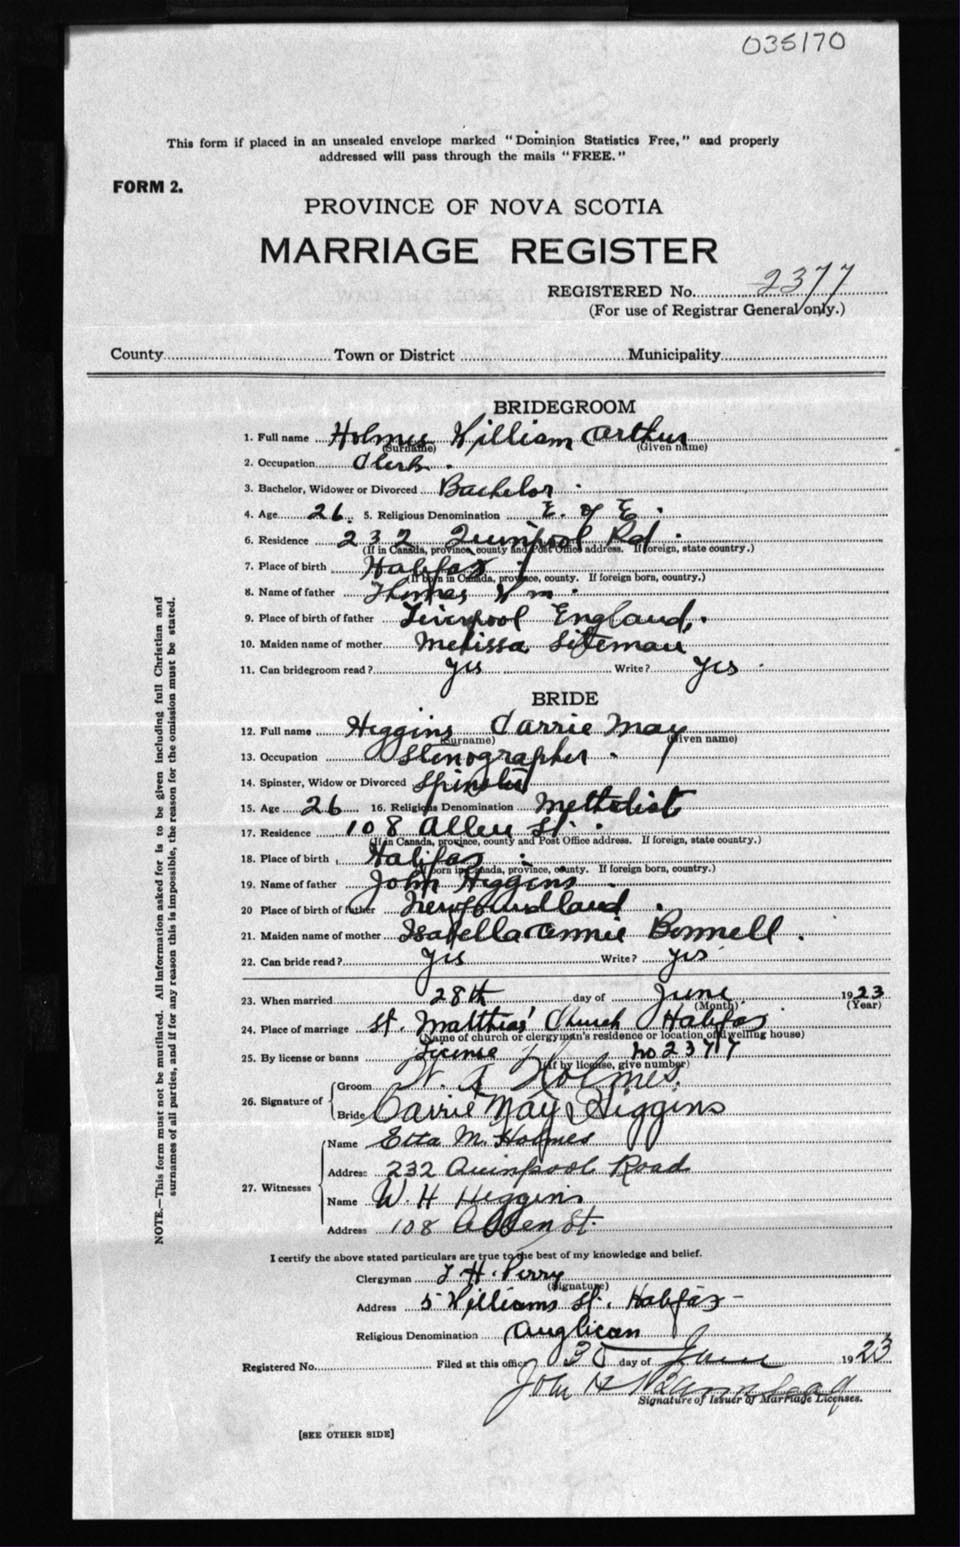 035170
This form if placed in an unsealed envelope marked "Dominion Statistics Free," and properly
addressed will pass through the mails "FREE."
FORM 2.
PROVINCE OF NOVA SCOTIA
MARRIAGE REGISTER
REGISTERED No. 2377
(For use of Registrar General only.)
County Town or District Municipality
BRIDEGROOM
1. Full name Holmes William Arthur
(Surname) (Given name)
2. Occupation Clerk.
3. Bachelor, Widower or Divorced Bachelor.
4. Age 26. 5. Religious Denomination E. of E.
6. Residence 232 Quinpool Rd.
(If in Canada, province, county and Post Office address. If foreign, state country.)
7. Place of birth Halifax
(If born in Canada, province, county. If foreign born, country.)
8. Name of father Thomas Wm.
9. Place of birth of father Liverpool England.
10. Maiden name of mother Melissa Siteman
11. Can bridegroom read? Yes Write? Yes
BRIDE
12. Full name Higgins Carrie May
(Surname) (Given name)
13. Occupation Stenographer
14. Spinster, Widow or Divorced Spinster
15. Age 26 16. Religious Denomination Methodist
17. Residence 108 Allen St.
(If in Canada, province, county and Post Office address. If foreign, state country.)
18. Place of birth Halifax
(If born in Canada, province, county. If foreign born, country.)
19. Name of father John Higgins
20 Place of birth of father Newfoundland
21. Maiden name of mother Isabella Annie Bonnell.
22. Can bride read? Yes Write? Yes
23. When married 28th day of June 1923
(Month) (Year)
24. Place of marriage St. Matthias' Church Halifax
(Name of church or clergyman's residence or location of dwelling house)
25. By license or banns License no 2377
(If by license, give number)
26. Signature of Groom W. A Holmes.
Bride Carrie May Higgins
27. Witnesses Name Etta M. Holmes
Address 232 Quinpool Road
Name W. H Higgins
Address 108 Allen St.
I certify the above stated particulars are true to the best of my knowledge and belief.
Clergyman T. H. Perry
(Signature)
Address 5 Williams St. Halifax
Religious Denomination Anglican
Registered No. Filed at this office 30 day of June 1923
John H
Signature of Issuer of Marriage Licenses.
[SEE OTHER SIDE]
NOTE.—This form must not be mutilated. All information asked for is to be given including full Christian and
surnames of all parties, and if for any reason this is impossible, the reason for the omission must be stated.